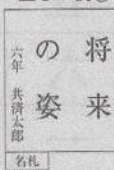 将来
の姿
六年 共済太郎
名札